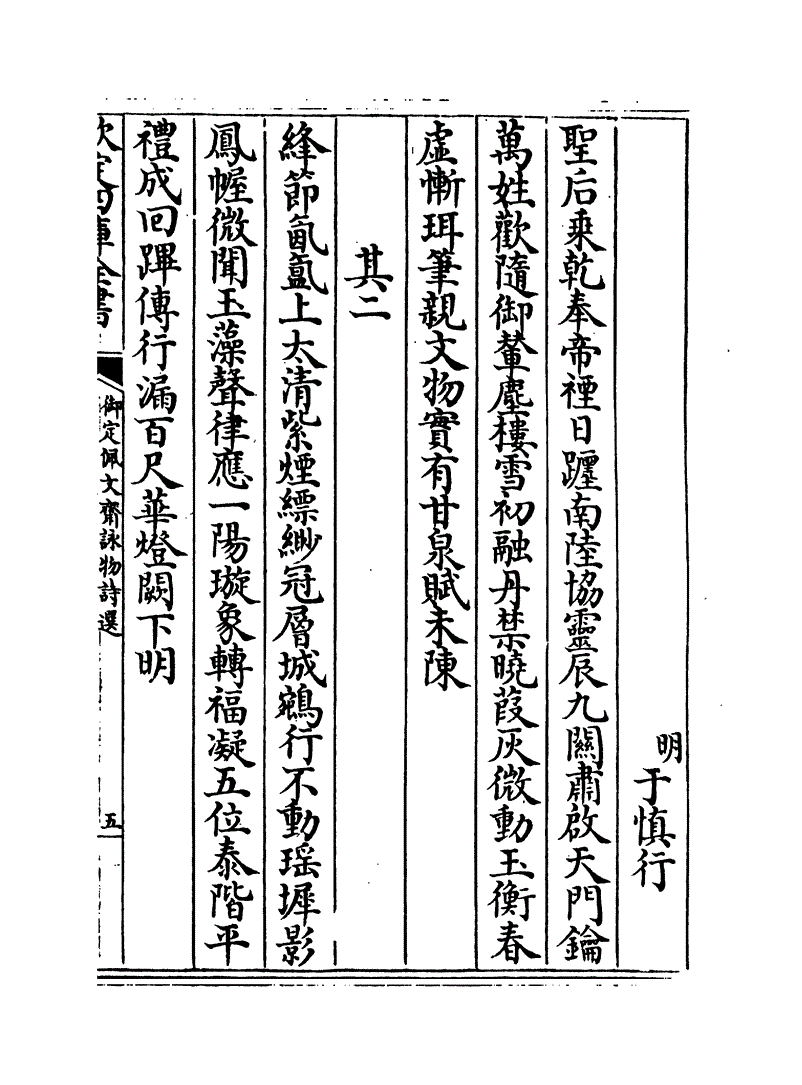 明于慎行
聖后乗乾奉帝禋日躔南陸協靈辰九闗肅啟天門鑰
萬姓歡隨御輦塵樓雪初融丹禁曉葭灰微動玉衡春
虚慚珥筆親文物實有甘泉賦未陳
其二
絳節氤氲上太清紫煙縹緲冠層城鵷行不動瑶墀影
鳳幄微聞玉藻聲律應一陽璇象轉福凝五位泰階平
禮成回蹕傳行漏百尺華燈闕下明
欽定四庫全書
御定佩文齋詠物詩選
五